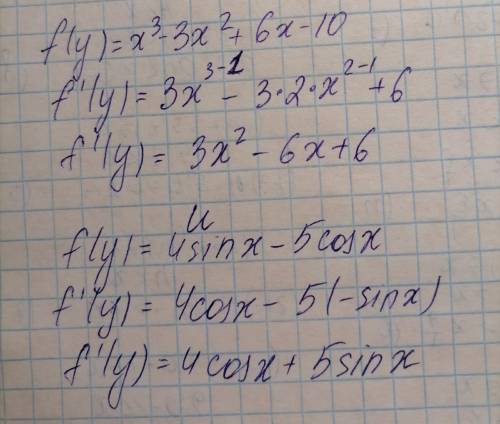 f(y) = x³ - 3x² + 6x - 10
f'(y) = 3x³⁻¹ - 3·2·x²⁻¹ + 6
f'(y) = 3x² - 6x + 6
f(y) = 4sinx - 5cosx
f'(y) = 4cosx - 5(-sinx)
f'(y) = 4cosx + 5sinx